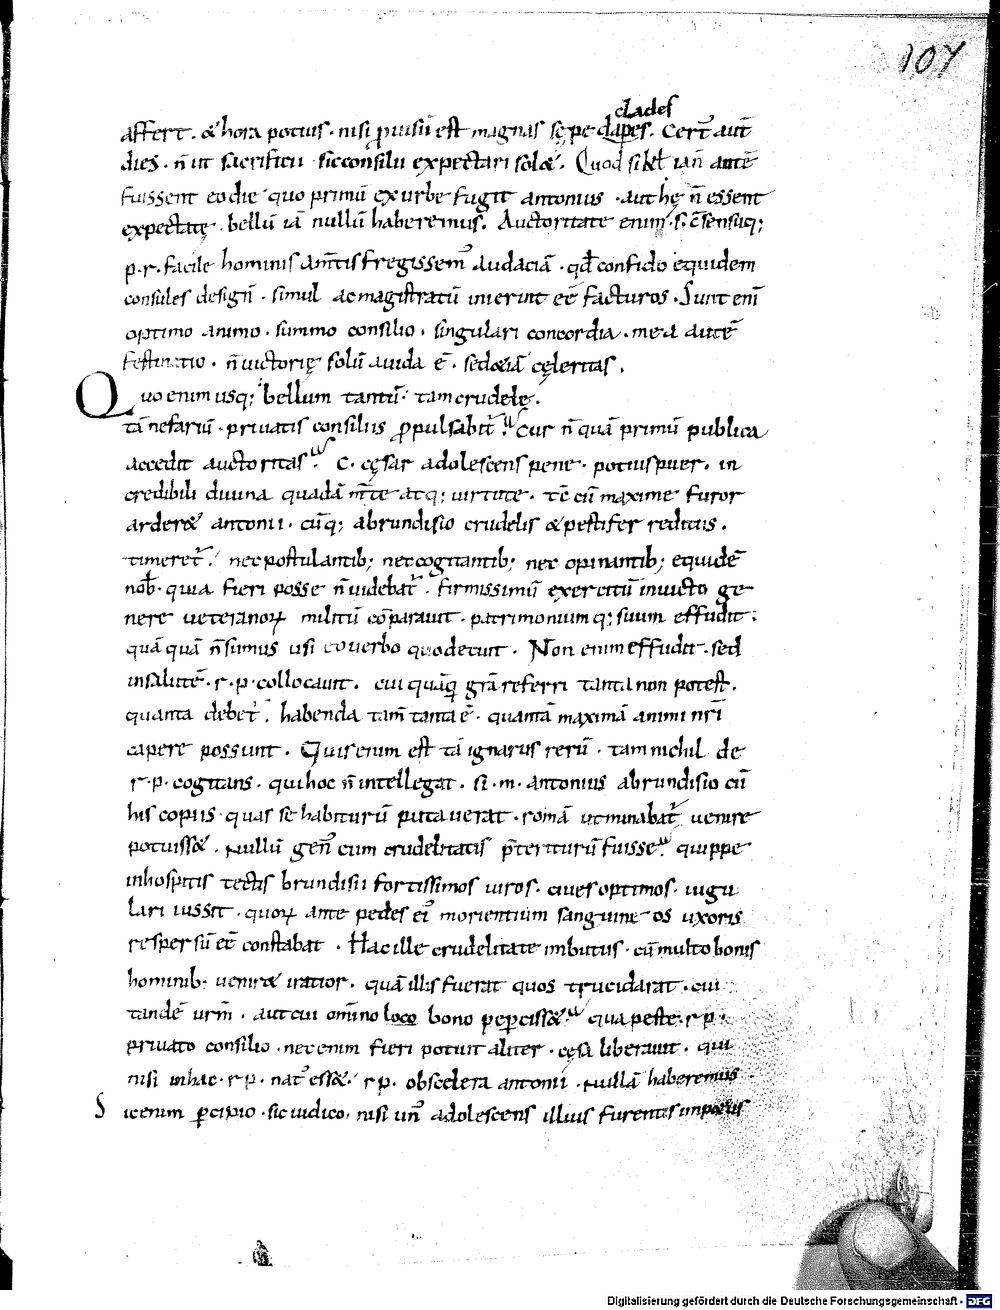 107
clades
affert. & hora potius. nisi ꝓuisū est magnas sępe dapes. Certͥ aut̄
dies. n̄ ut sacrificii. sic consilii expectari sol&. Quod si kł ian̄ ante
fuissent eo die quo primū ex urbe fugit antonius. aut hę n̄ essent
expectatę. bellū iā nullū haberemus. Auctoritate enim .s. c̄sensuq;
p.r. facile hominis am̄tis fregissem᾽ audaciā. qđ confido equidem
consules design̄. simul ac magistratū inierint eē facturos. Sunt eni̅
optimo animo. summo consilio. singulari concordia. mea autē
festinatio. n̄ uictorię solū auida ē. sed &iā cęleritas.
Quo enim usq; bellum tantū. tam crudelę.
tā nefariū. priuatis consiliis ꝓpulsabit᾽? Cur n̄ quā primū publica
accedit auctoritas? C. cęsar adolescens pene. potius puer. in
credibili diuina quadā m̄te atq; uirtute. tc̄ cū maxime furor
arder& antonii. cūq; abrundisio crudelis & pestifer reditus.
timeret᾽. nec postulantib; nec cogitantib; nec opinantib; equidē
nob̄. quia fieri posse n̄ uidebat᾽. firmissimū exercitū inuicto ge
nere ueteranoꝝ militū cōparauit. patrimoniumq; suum effudit:
quāquā n̄ sumus usi eo uerbo quo decuit. Non enim effudit. sed
in salute̅. r.p. collocauit. cui quāq̄ grā referri tanta non potest.
quanta debet᾽. habenda tam̄ tanta ē. quantā maximā animi nr̄i
capere possunt. Quis enim est tā ignarus rerū. tam nichil de
r.p. cogitans. qui hoc n̄ intellegat. si .m. antonius abrundisio cū
his copiis quas se habiturū putauerat. romā ut minabat᾽ uenire
potuiss&. nullū gen᾽ eum crudelitatis p̄teriturū fuisse? quippe
in hospitis tectis brundisii fortissimos uiros. ciues optimos. iugu
lari iussit. quoꝝ ante pedes ei᾽ morientium sanguine os uxoris
respersū eē constabat. Hac ille crudelitate imbutus. cū multo bonis
hominib; uenir& iratior. quā illis fuerat quos trucidarat. cui
tandē urm̄. aut cui omīno loco bono peperciss&? qua peste .r.p.
priuato consilio. nec enim fieri potuit aliter. cęsā liberauit. qui
nisi in hac .r.p. nat᾽ ess&. r.p. obscelera antonii. nullā haberemus.
Sic enim ꝑcipio. sic iudico. nisi un᾽ adolescens illius furentis imp&us
Digitalisierung gefördert durch die Deutsche Forschungsgemeinschaft - DFG